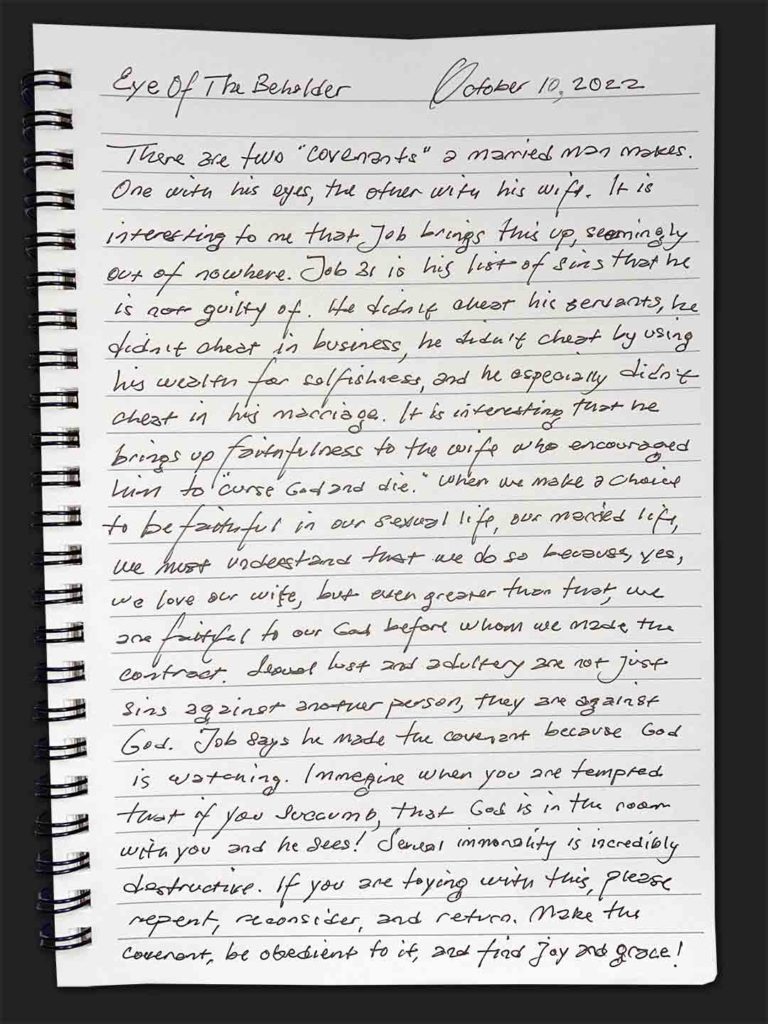 Eye Of The Beholder October 10, 2022
There are two "covenants" a married man makes.
One with his eyes, the other with his wife. It is
interesting to me that Job brings this up, seemingly
out of nowhere. Job 31 is his list of sins that he
is not guilty of. He didn't cheat his servants, he
didn't cheat in business, he didn't cheat by using
his wealth for selfishness, and he especially didn't
cheat in his marriage. It is interesting that he
brings up faithfulness to the wife who encouraged
him to "curse God and die." When we make a choice
to be faithful in our sexual life, our married life,
we must understand that we do so because, yes,
we love our wife, but even greater than that, we
are faithful to our God before whom we made the
contract. Sexual lust and adultery are not just
sins against another person, they are against
God. Job says he made the covenant because God
is watching. Immegine when you are tempted
that if you succumb, that God is in the room
with you and he sees! Sexual immorality is incredibly
destructive. If you are toying with this, please
repent, reconsider, and return. Make the
covenant, be obedient to it, and find joy and grace!